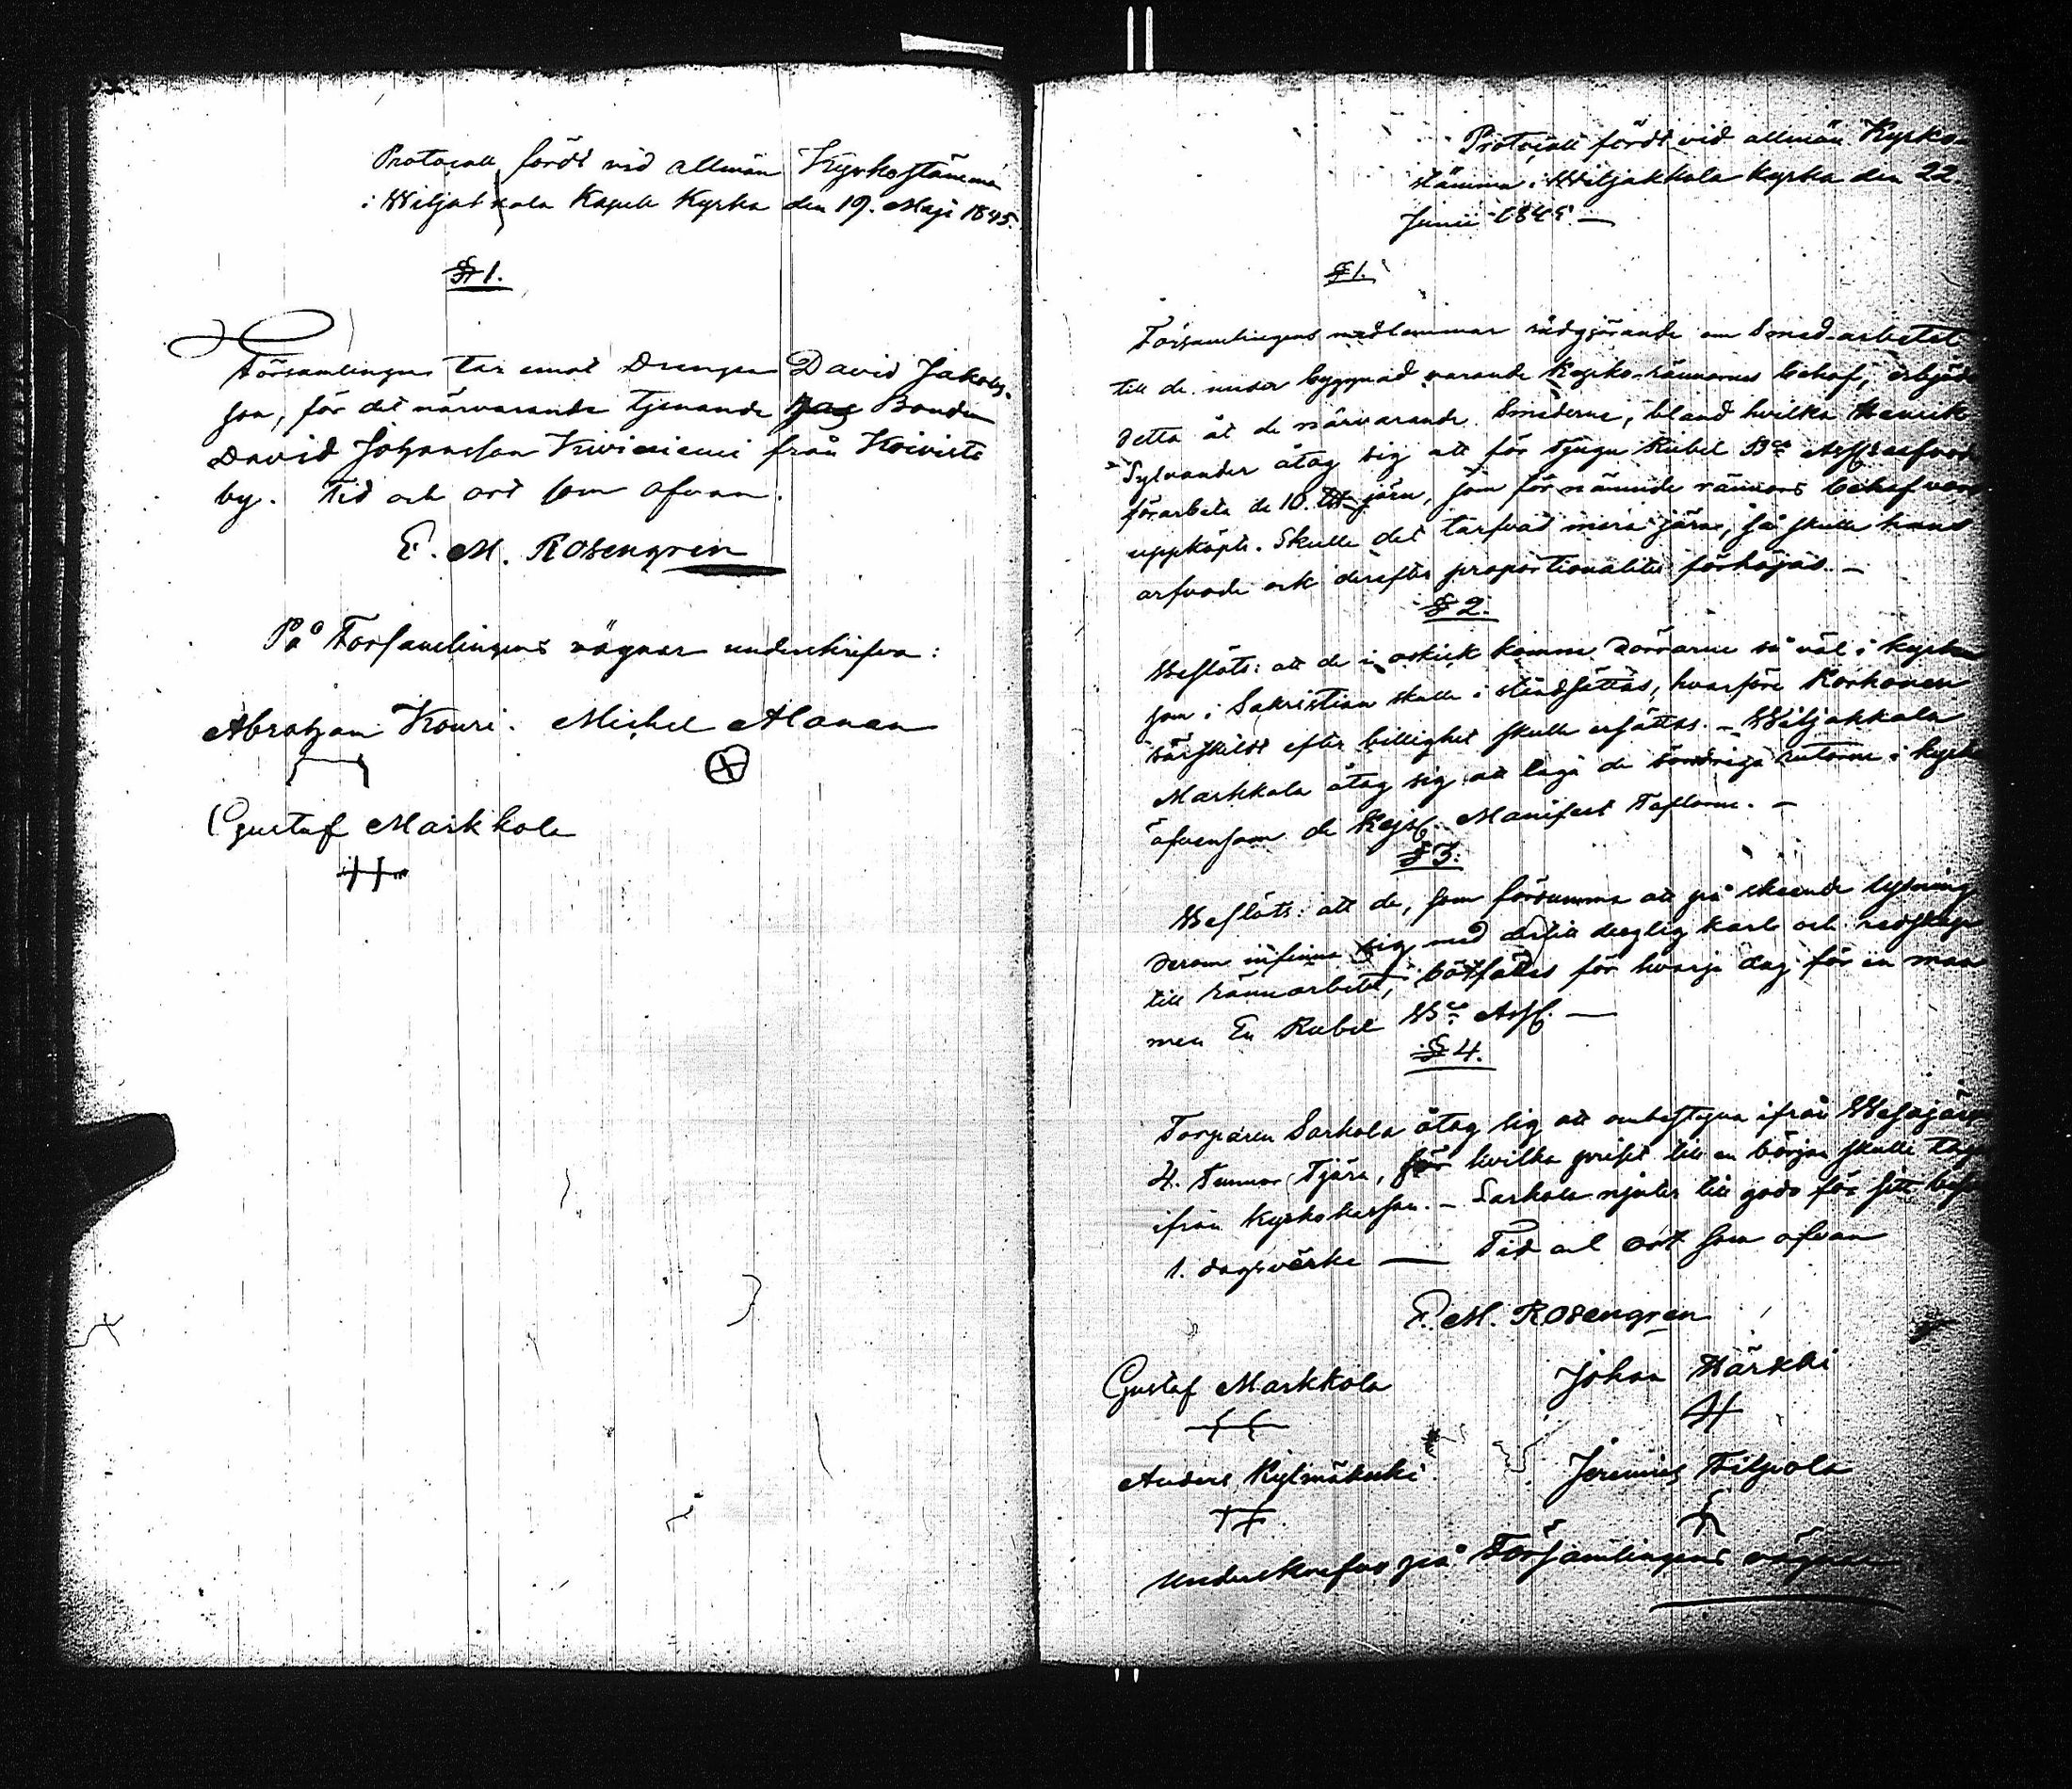 Protocoll fördt vid allmän Kyrkostämma
i Wiljakkala Kapell Kyrka den 19. Maji 1845.
§ 1.
Församlingen tar emot Drengen David Jakobs-
son, för det närvarande tjenande hos Bonden
David Johansson Kiviniemi från Koivisto
by. Tid och ort som ofvan.
E. M. Rosengren
På Församlingens vägnar underskrifva:
Abraham Kouri. Michel Alanen
Gustaf Markkola
Protocoll fördt vid allmän Kyrko-
stämma i Wiljakkala Kyrka den 22
Junii 1845. —
§ 1.
Församlingens medlemmar rådgjörande om Smed-arbetet
till de under byggnad varande Kyrko-rännornes behof, erbjöds
detta åt de närvarande Smederne, bland hvilka Henrik
Sylvander åtog sig att för tjugu Rubel B:co Ass. arfvode
förarbeta de 10. järn, som för nämnde rännors behof voro
uppköpte. Skulle det tarfvas mera järn, så skulle hans
arfvode ock derefter proportionaliter förhöjas. —
§ 2.
Beslöts: att de i oskick komne Dörrarne så väl i kyrkan
som i Sakristian skulle i ståndsättas, hvarföre Korhonen
särskildt efter billighet skulle ersättas. — Wiljakkala
Markkola åtog sig att laga de söndriga rutorne i kyrkan
äfvensom de Kejs. Manifest Taflorne. —
§ 3.
Beslöts: att de, som försumma att på skeende lysning
derom infinna sig med dertill duglig karl och redskap
till rännarbetet, bötfälles för hvarje dag för en man
men En Rubel B:co Ass. —
§ 4.
Torparen Sarkola åtog sig att ombestyra ifrån Wesajärvi
4. Tunnor Tjära, för hvilka priset till en början skulle tagas
ifrån Kyrkokassan. — Sarkola njuter till godo för sitt besvär
1. dagsverke — Tid och ort som ofvan
E. M. Rosengren
Gustaf Markkola Johan Härkki
Anders Kylmäkoski Jeremias Filpola
Underskrifva på Församlingens vägnar